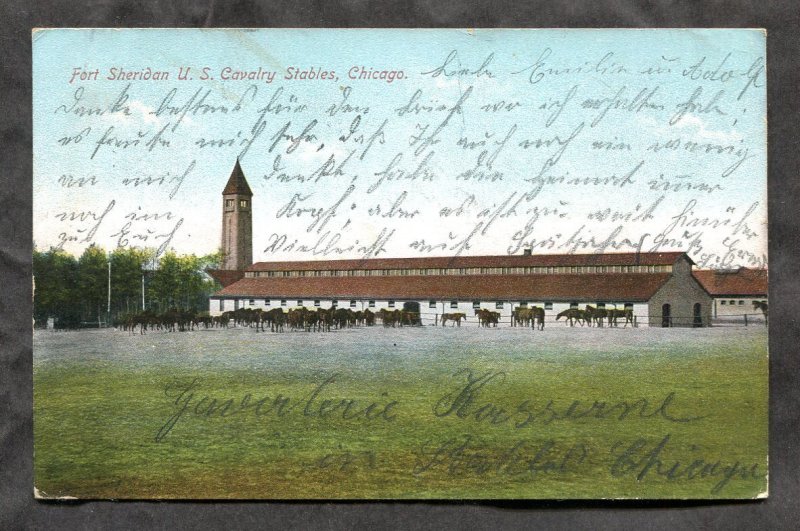 Fort Sheridan U. S. Cavalry Stables, Chicago.
Liebe Emilie u Adolf
Danke bestens für den brief wo ich erhalten hab,
es freut mich sehr, daß Ihr auch noch ein wenig
an mich denkt, habe die Heimat immer
noch im Kopf, aber es ist zu weit hinüber
zus Euch Vielleicht auch Spätjahr Gruß
Gaverlerie Kasserne
in Stadt Chicago